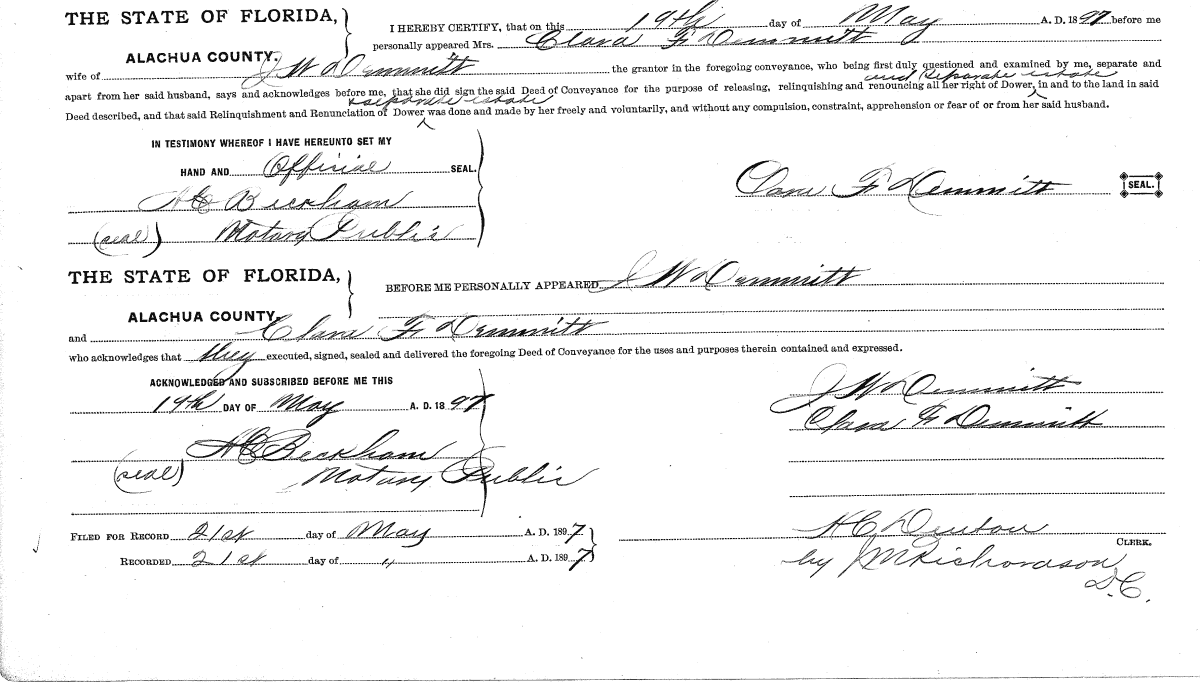 THE STATE OF FLORIDA,
I HEREBY CERTIFY, that on this 19th day of May A. D. 1897 before me
ALACHUA COUNTY. personally appeared Mrs. Clara F Demmitt
wife of J W Demmitt the grantor in the foregoing conveyance, who being first duly questioned and examined by me, separate and
and Separate estate
apart from her said husband, says and acknowledges before me, that she did sign the said Deed of Conveyance for the purpose of releasing, relinquishing and renouncing all her right of Dower, in and to the land in said
& separate estate
Deed described, and that said Relinquishment and Renunciation of Dower was done and made by her freely and voluntarily, and without any compulsion, constraint, apprehension or fear of or from her said husband.
IN TESTIMONY WHEREOF I HAVE HEREUNTO SET MY
HAND AND Official SEAL.
Clara F Demmitt SEAL.
H C Beckham
(seal) Notary Public
THE STATE OF FLORIDA,
BEFORE ME PERSONALLY APPEARED J W Demmitt
ALACHUA COUNTY.
and Clara F Demmitt
who acknowledges that they executed, signed, sealed and delivered the foregoing Deed of Conveyance for the uses and purposes therein contained and expressed.
ACKNOWLEDGED AND SUBSCRIBED BEFORE ME THIS
19th DAY OF May A. D. 1897
J W Demmitt
Clara F Demmitt
H C Beckham
(seal) Notary Public
FILED FOR RECORD 21st day of May A. D. 1897
H C Denton
CLERK.
RECORDED 21st day of " A. D. 1897
by J M Richardson
D. C.